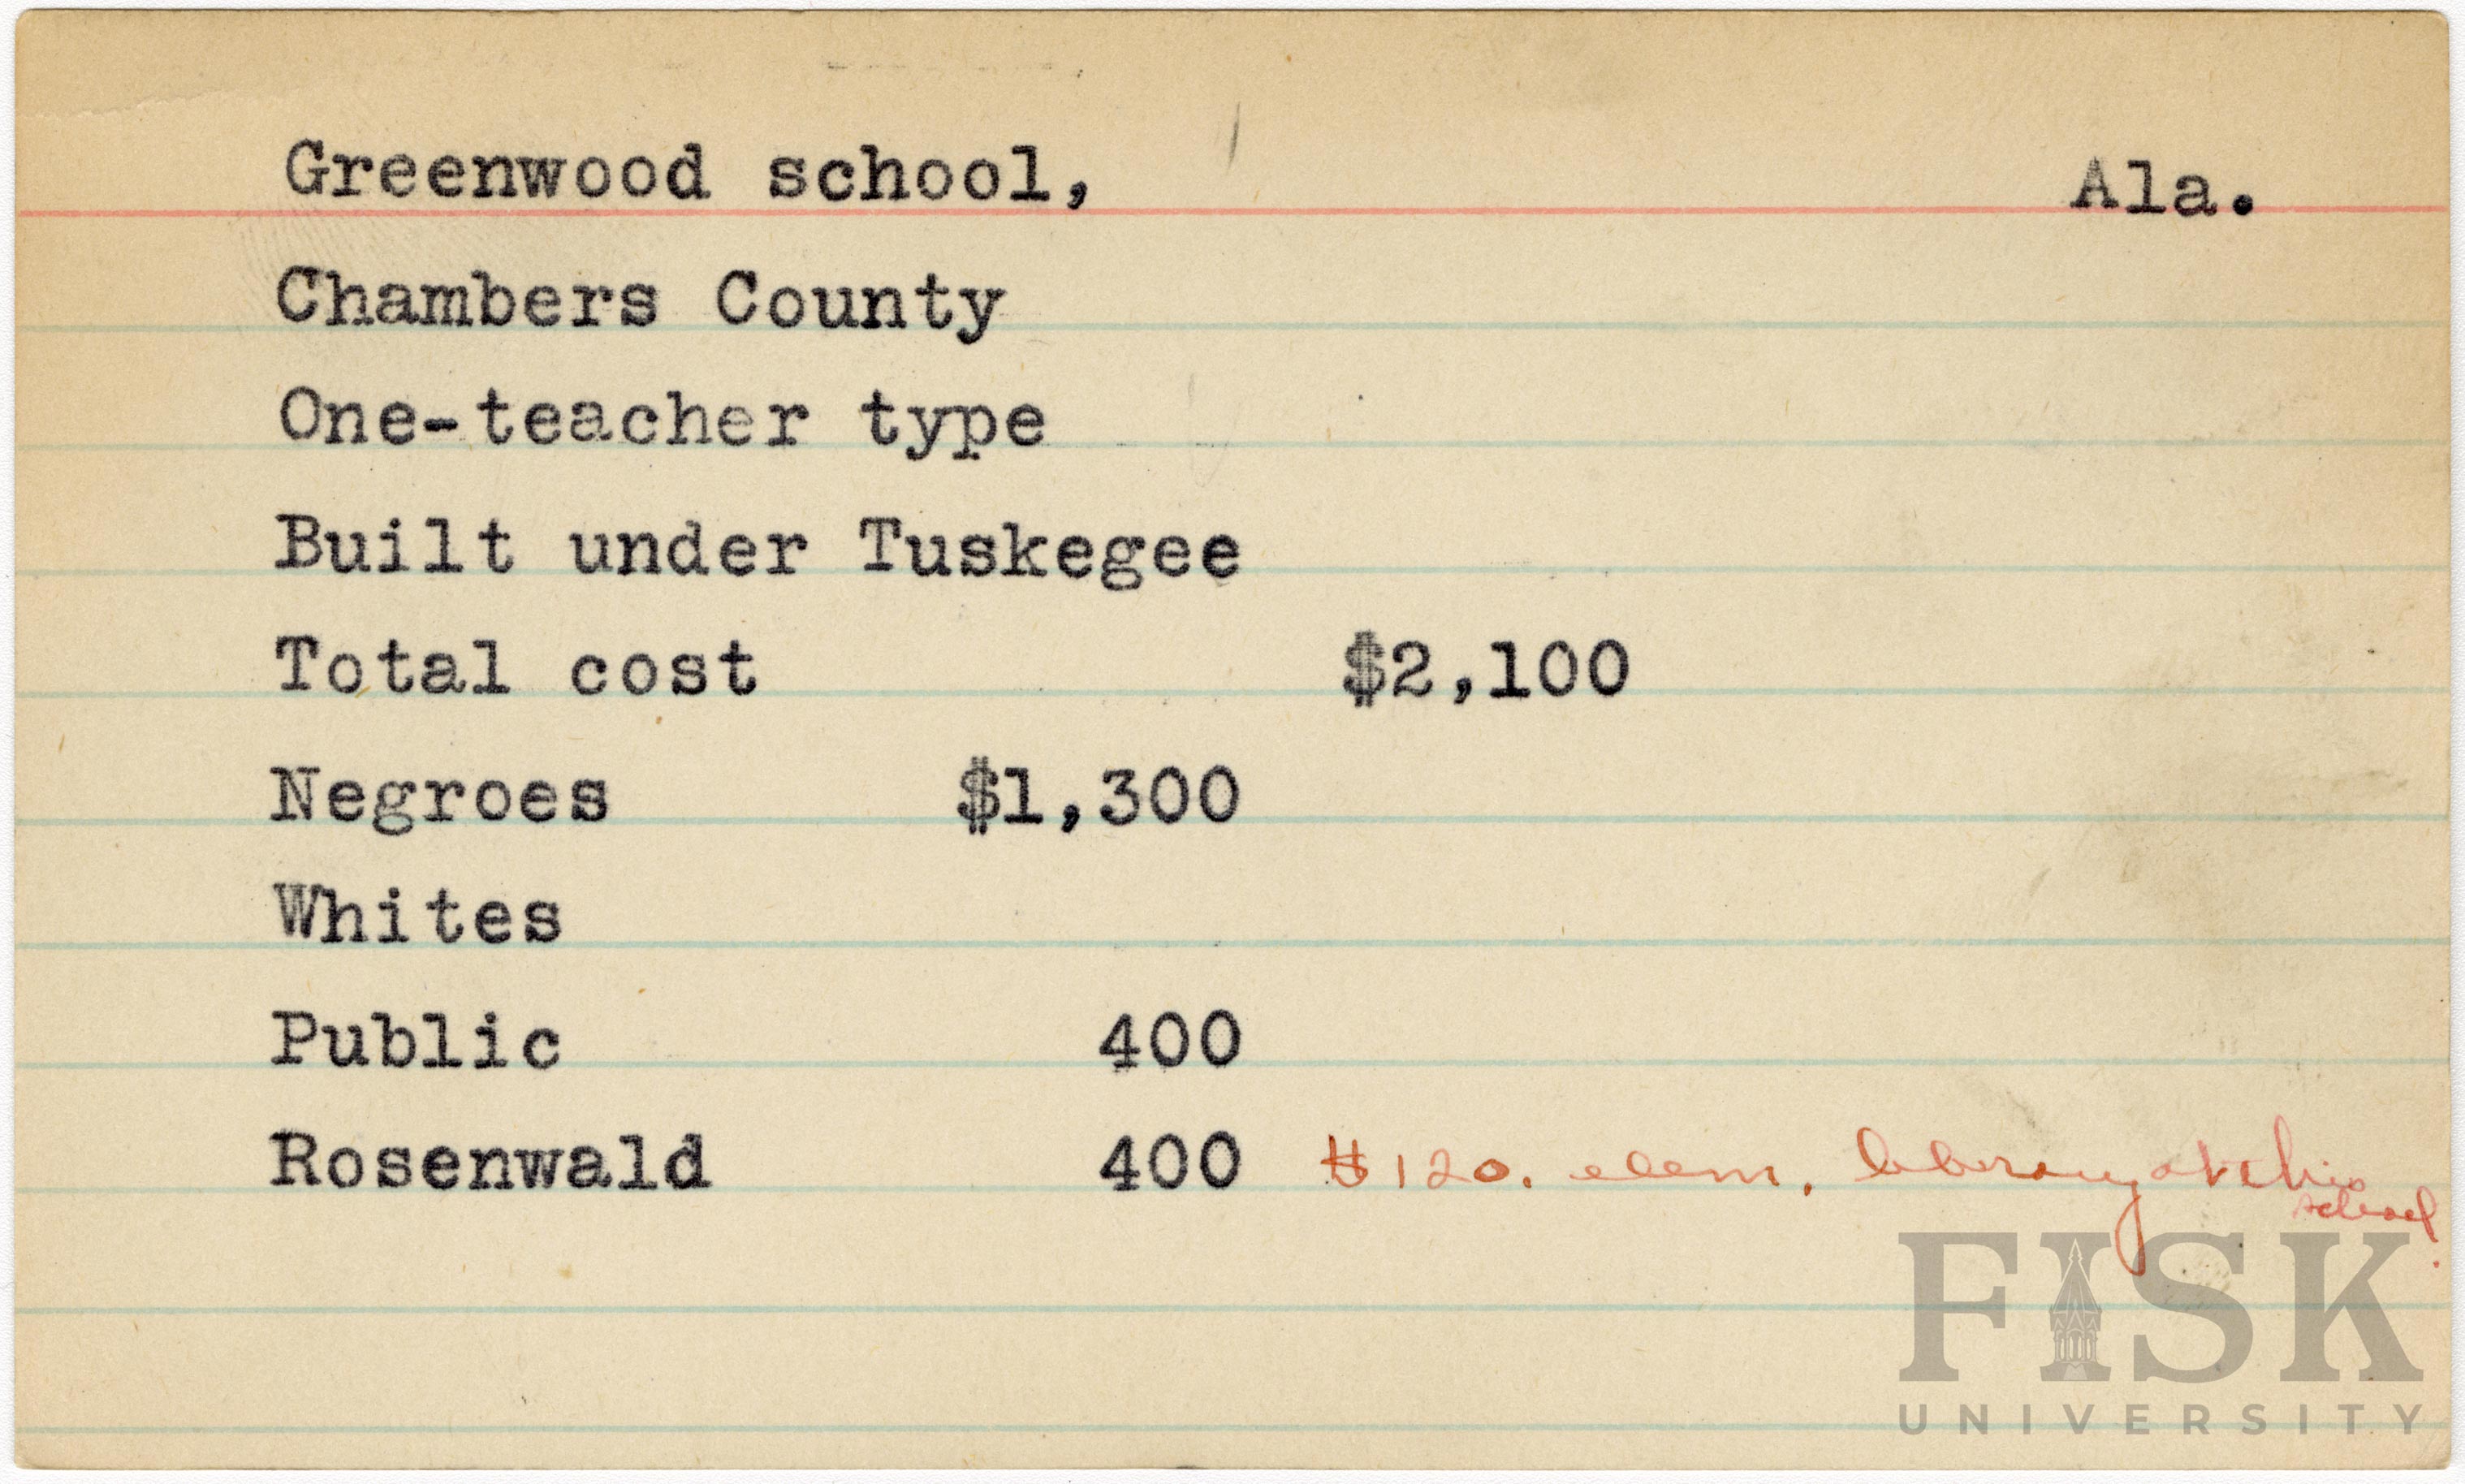 Greenwood school, Ala.
Chambers County
One-teacher type
Built under Tuskegee
Total cost $2,100
Negroes $1,300
Whites
Public 400
Rosenwald 400 $120. elem. library at this
school.
FISK
UNIVERSITY